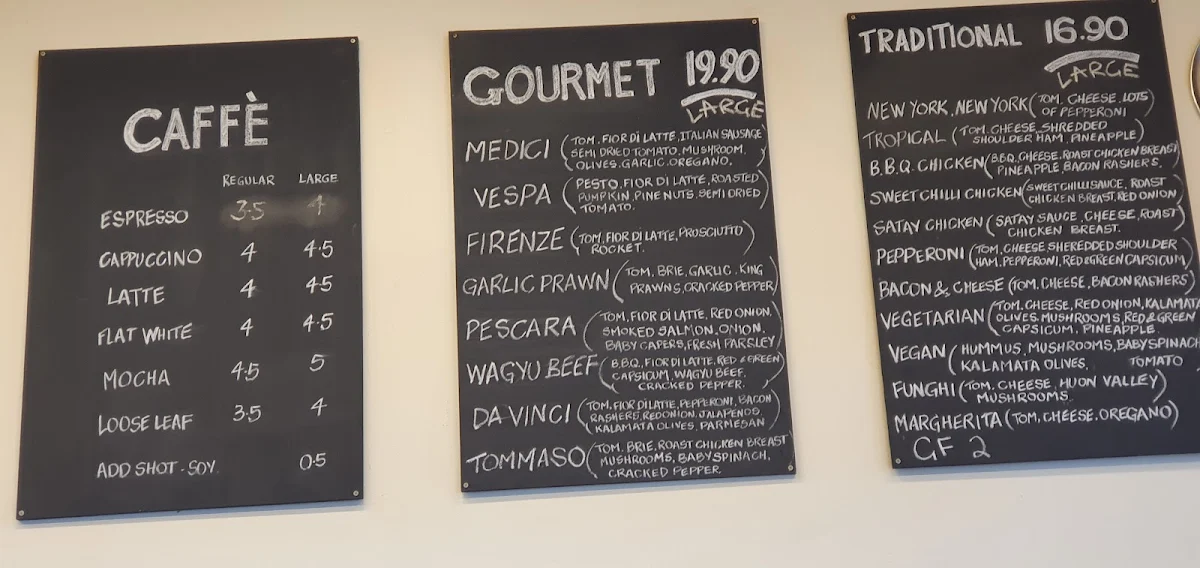 CAFFÈ
REGULAR LARGE
ESPRESSO 3.5 4
CAPPUCCINO 4 4.5
LATTE 4 4.5
FLAT WHITE 4 4.5
MOCHA 4.5 5
LOOSE LEAF 3.5 4
ADD SHOT - SOY 0.5
GOURMET 19.90
LARGE
MEDICI (TOM. FIOR DI LATTE. ITALIAN SAUSAGE
SEMI DRIED TOMATO. MUSHROOM.
OLIVES. GARLIC. OREGANO.)
VESPA (PESTO. FIOR DI LATTE, ROASTED
PUMPKIN, PINE NUTS. SEMI DRIED
TOMATO.)
FIRENZE (TOM. FIOR DI LATTE, PROSCIUTTO
ROCKET.)
GARLIC PRAWN (TOM. BRIE, GARLIC. KING
PRAWNS, CRACKED PEPPER)
PESCARA (TOM, FIOR DI LATTE, RED ONION,
SMOKED SALMON, ONION,
BABY CAPERS, FRESH PARSLEY)
WAGYU BEEF (B.B.Q, FIOR DI LATTE, RED & GREEN
CAPSICUM, WAGYU BEEF,
CRACKED PEPPER.)
DA VINCI (TOM. FIOR DI LATTE, PEPPERONI, BACON
RASHERS, RED ONION, JALAPENOS,
KALAMATA OLIVES, PARMESAN)
TOMMASO (TOM. BRIE, ROAST CHICKEN BREAST
MUSHROOMS, BABY SPINACH,
CRACKED PEPPER.)
TRADITIONAL 16.90
LARGE
NEW YORK, NEW YORK (TOM. CHEESE. LOTS
OF PEPPERONI)
TROPICAL (TOM. CHEESE, SHREDDED
SHOULDER HAM, PINEAPPLE)
B.B.Q. CHICKEN (B.B.Q. CHEESE. ROAST CHICKEN BREAST
PINEAPPLE, BACON RASHERS.)
SWEET CHILLI CHICKEN (SWEET CHILLI SAUCE, ROAST
CHICKEN BREAST, RED ONION)
SATAY CHICKEN (SATAY SAUCE, CHEESE, ROAST
CHICKEN BREAST.)
PEPPERONI (TOM, CHEESE SHEREDDED SHOULDER
HAM, PEPPERONI, RED & GREEN CAPSICUM)
BACON & CHEESE (TOM, CHEESE, BACON RASHERS)
VEGETARIAN (TOM. CHEESE, RED ONION, KALAMATA
OLIVES, MUSHROOMS, RED & GREEN
CAPSICUM. PINEAPPLE.
VEGAN (HUMMUS, MUSHROOMS, BABY SPINACH
KALAMATA OLIVES, TOMATO
FUNGHI (TOM. CHEESE, HUON VALLEY)
MUSHROOMS
MARGHERITA (TOM, CHEESE, OREGANO)
GF 2